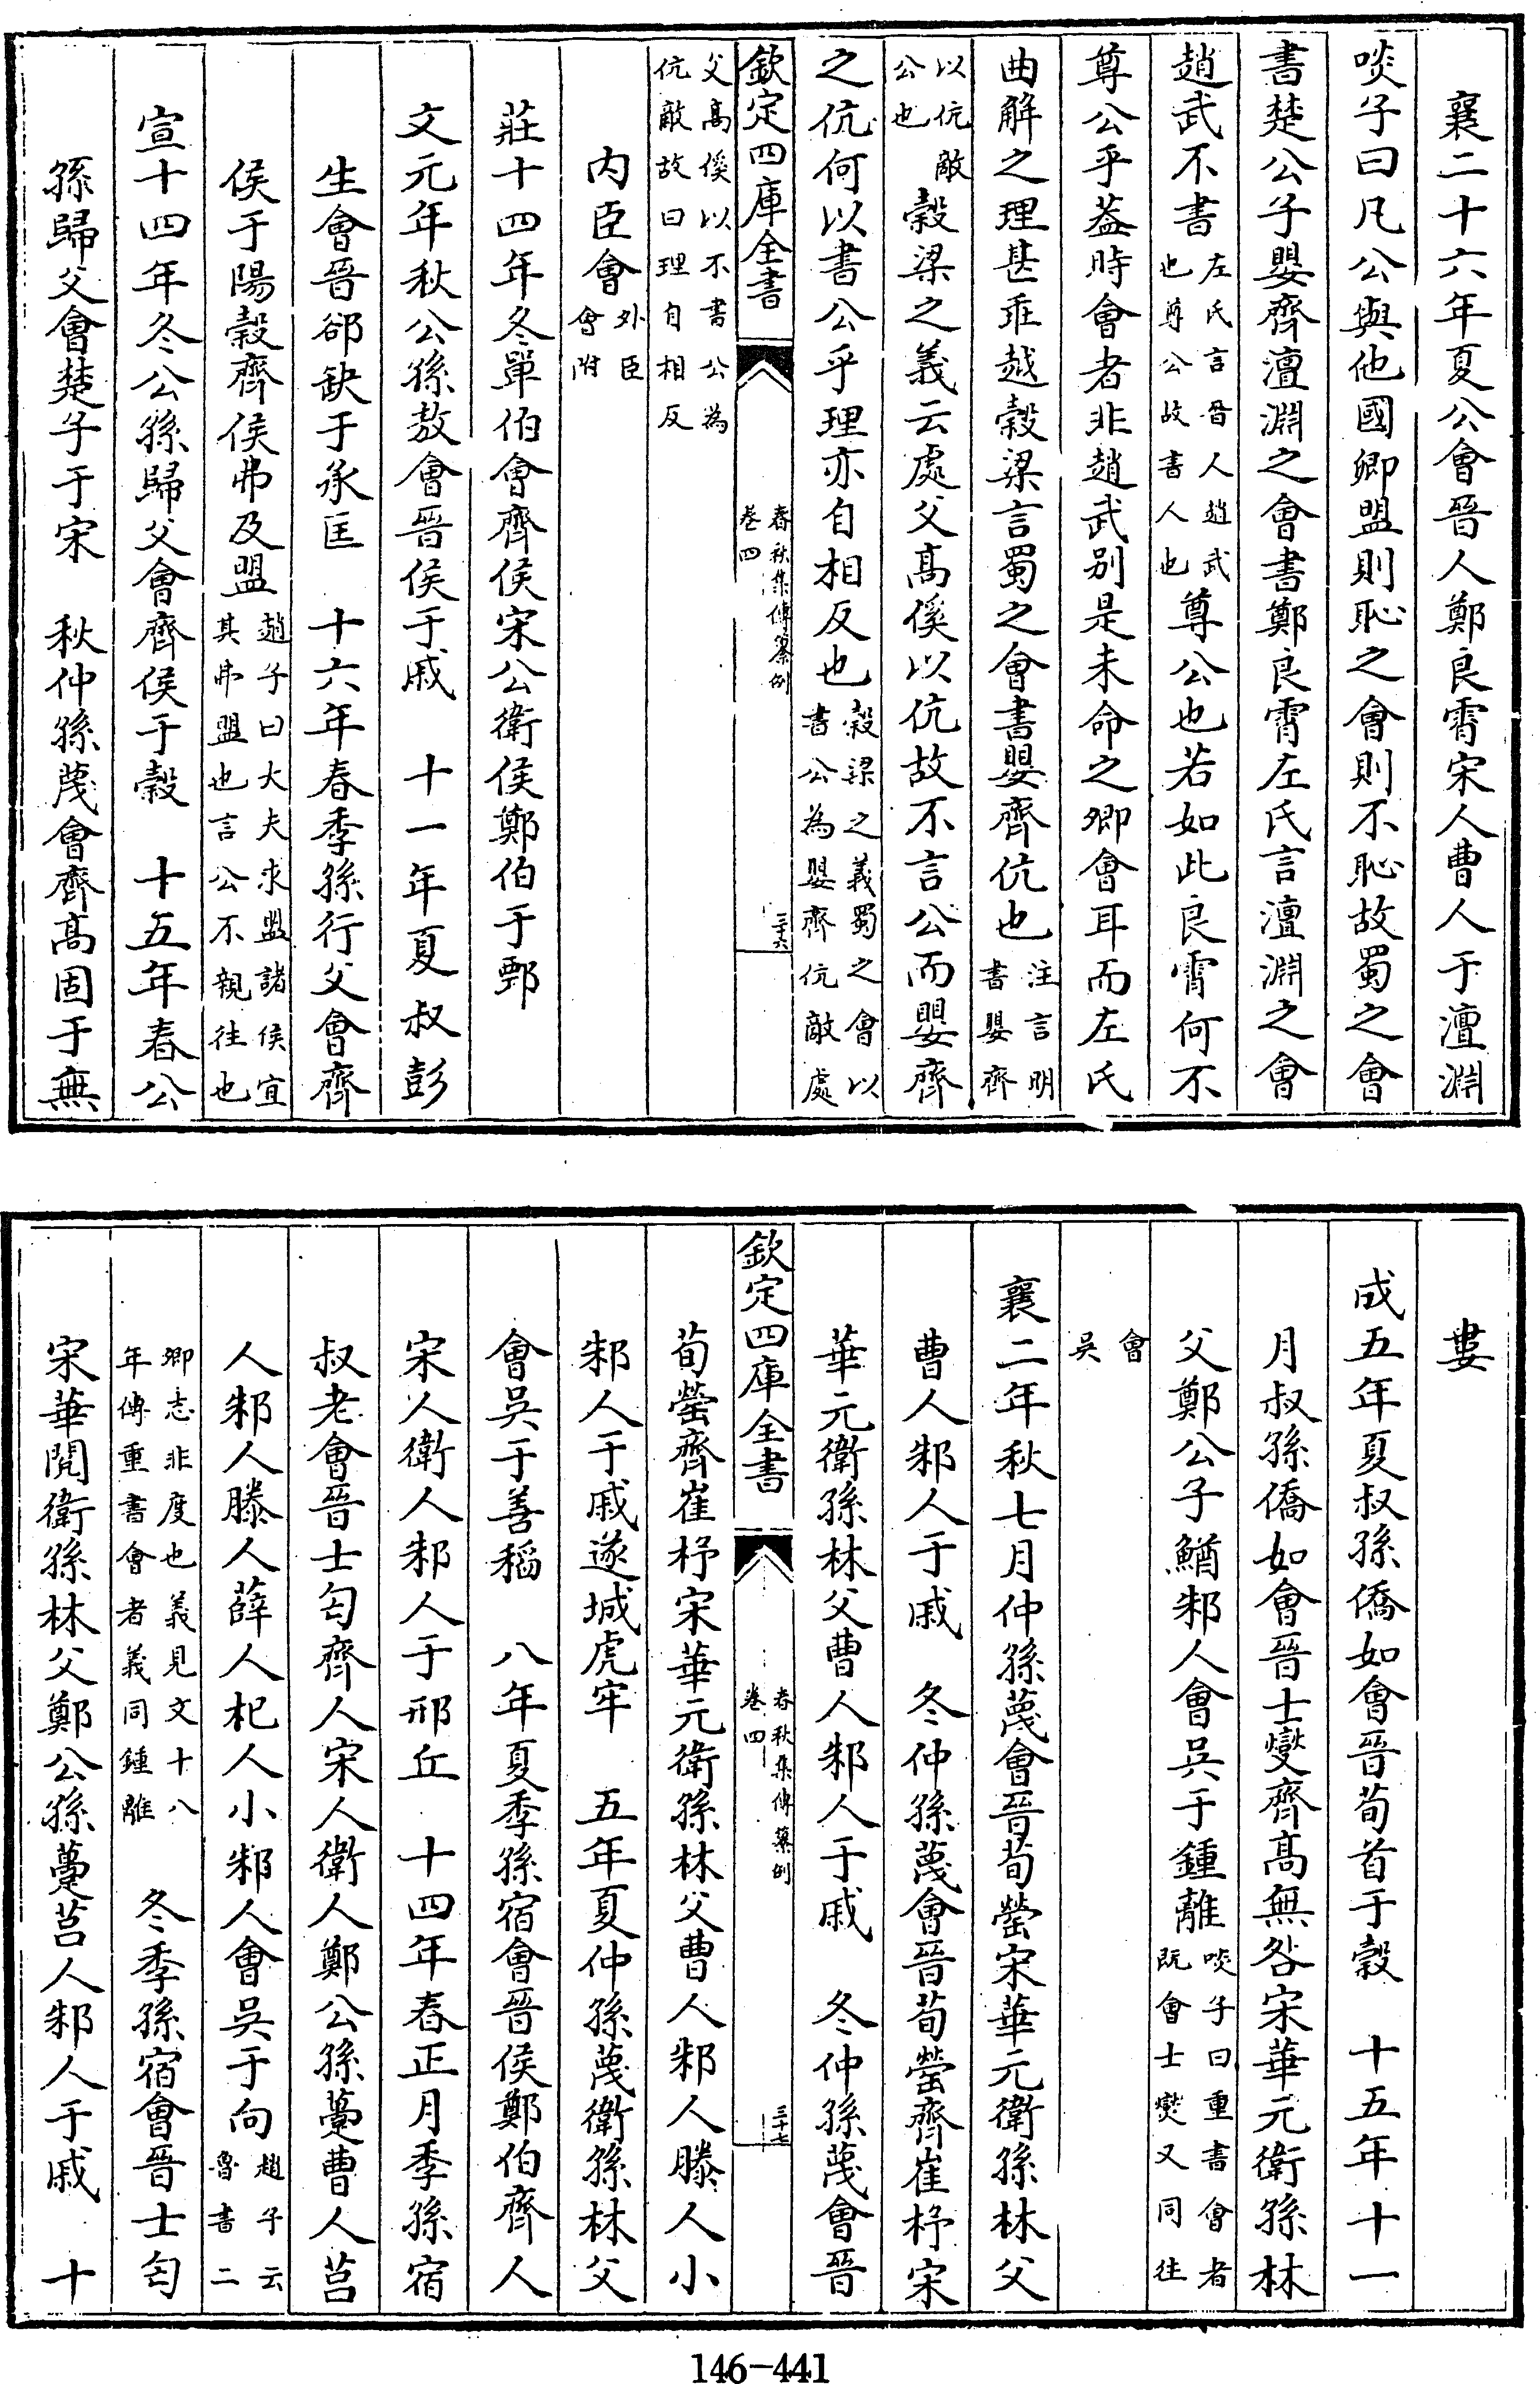 襄二十六年夏公會晉人鄭良霄宋人曹人于澶淵
啖子曰凡公與他國卿盟則恥之會則不恥故蜀之會
書楚公子嬰齊澶淵之會書鄭良霄左氏言澶淵之會
趙武不書左氏言晉人趙武也尊公故書人也尊公也若如此良霄何不
尊公乎葢時會者非趙武別是未命之卿會耳而左氏
曲解之理甚乖越穀梁言蜀之會書嬰齊伉也注言明書嬰齊
以伉敵公也穀梁之義云處父高傒以伉故不言公而嬰齊
之伉何以書公乎理亦自相反也穀梁之義蜀之會以書公為嬰齊伉敵處
欽定四庫全書
春秋集傳纂例
卷四
三十六
父高傒以不書公為伉敵故曰理自相反
內臣會外臣會附
莊十四年冬單伯會齊侯宋公衛侯鄭伯于鄄
文元年秋公孫敖會晉侯于戚 十一年夏叔彭
生會晉郤缺于承匡 十六年春季孫行父會齊
侯于陽穀齊侯弗及盟趙子曰大夫求盟諸侯宜其弗盟也言公不親往也
宣十四年冬公孫歸父會齊侯于穀 十五年春公
孫歸父會楚子于宋 秋仲孫蔑會齊高固于無
婁
成五年夏叔孫僑如會晉荀首于穀 十五年十一
月叔孫僑如會晉士燮齊高無咎宋華元衛孫林
父鄭公子鰌邾人會吳于鍾離啖子曰重書會者既會士燮又同往
會吳
襄二年秋七月仲孫蔑會晉荀罃宋華元衛孫林父
曹人邾人于戚 冬仲孫蔑會晉荀罃齊崔杼宋
華元衛孫林父曹人邾人于戚 冬仲孫蔑會晉
欽定四庫全書
春秋集傳纂例
卷四
三十七
荀罃齊崔杼宋華元衛孫林父曹人邾人滕人小
邾人于戚遂城虎牢 五年夏仲孫蔑衛孫林父
會吳于善稻 八年夏季孫宿會晉侯鄭伯齊人
宋人衛人邾人于邢丘 十四年春正月季孫宿
叔老會晉士匄齊人宋人衛人鄭公孫蠆曹人莒
人邾人滕人薛人杞人小邾人會吳于向趙子云魯書二
卿志非度也義見文十八年傳重書會者義同鍾離 冬季孫宿會晉士匄
宋華閱衛孫林父鄭公孫蠆莒人邾人于戚 十
146-441